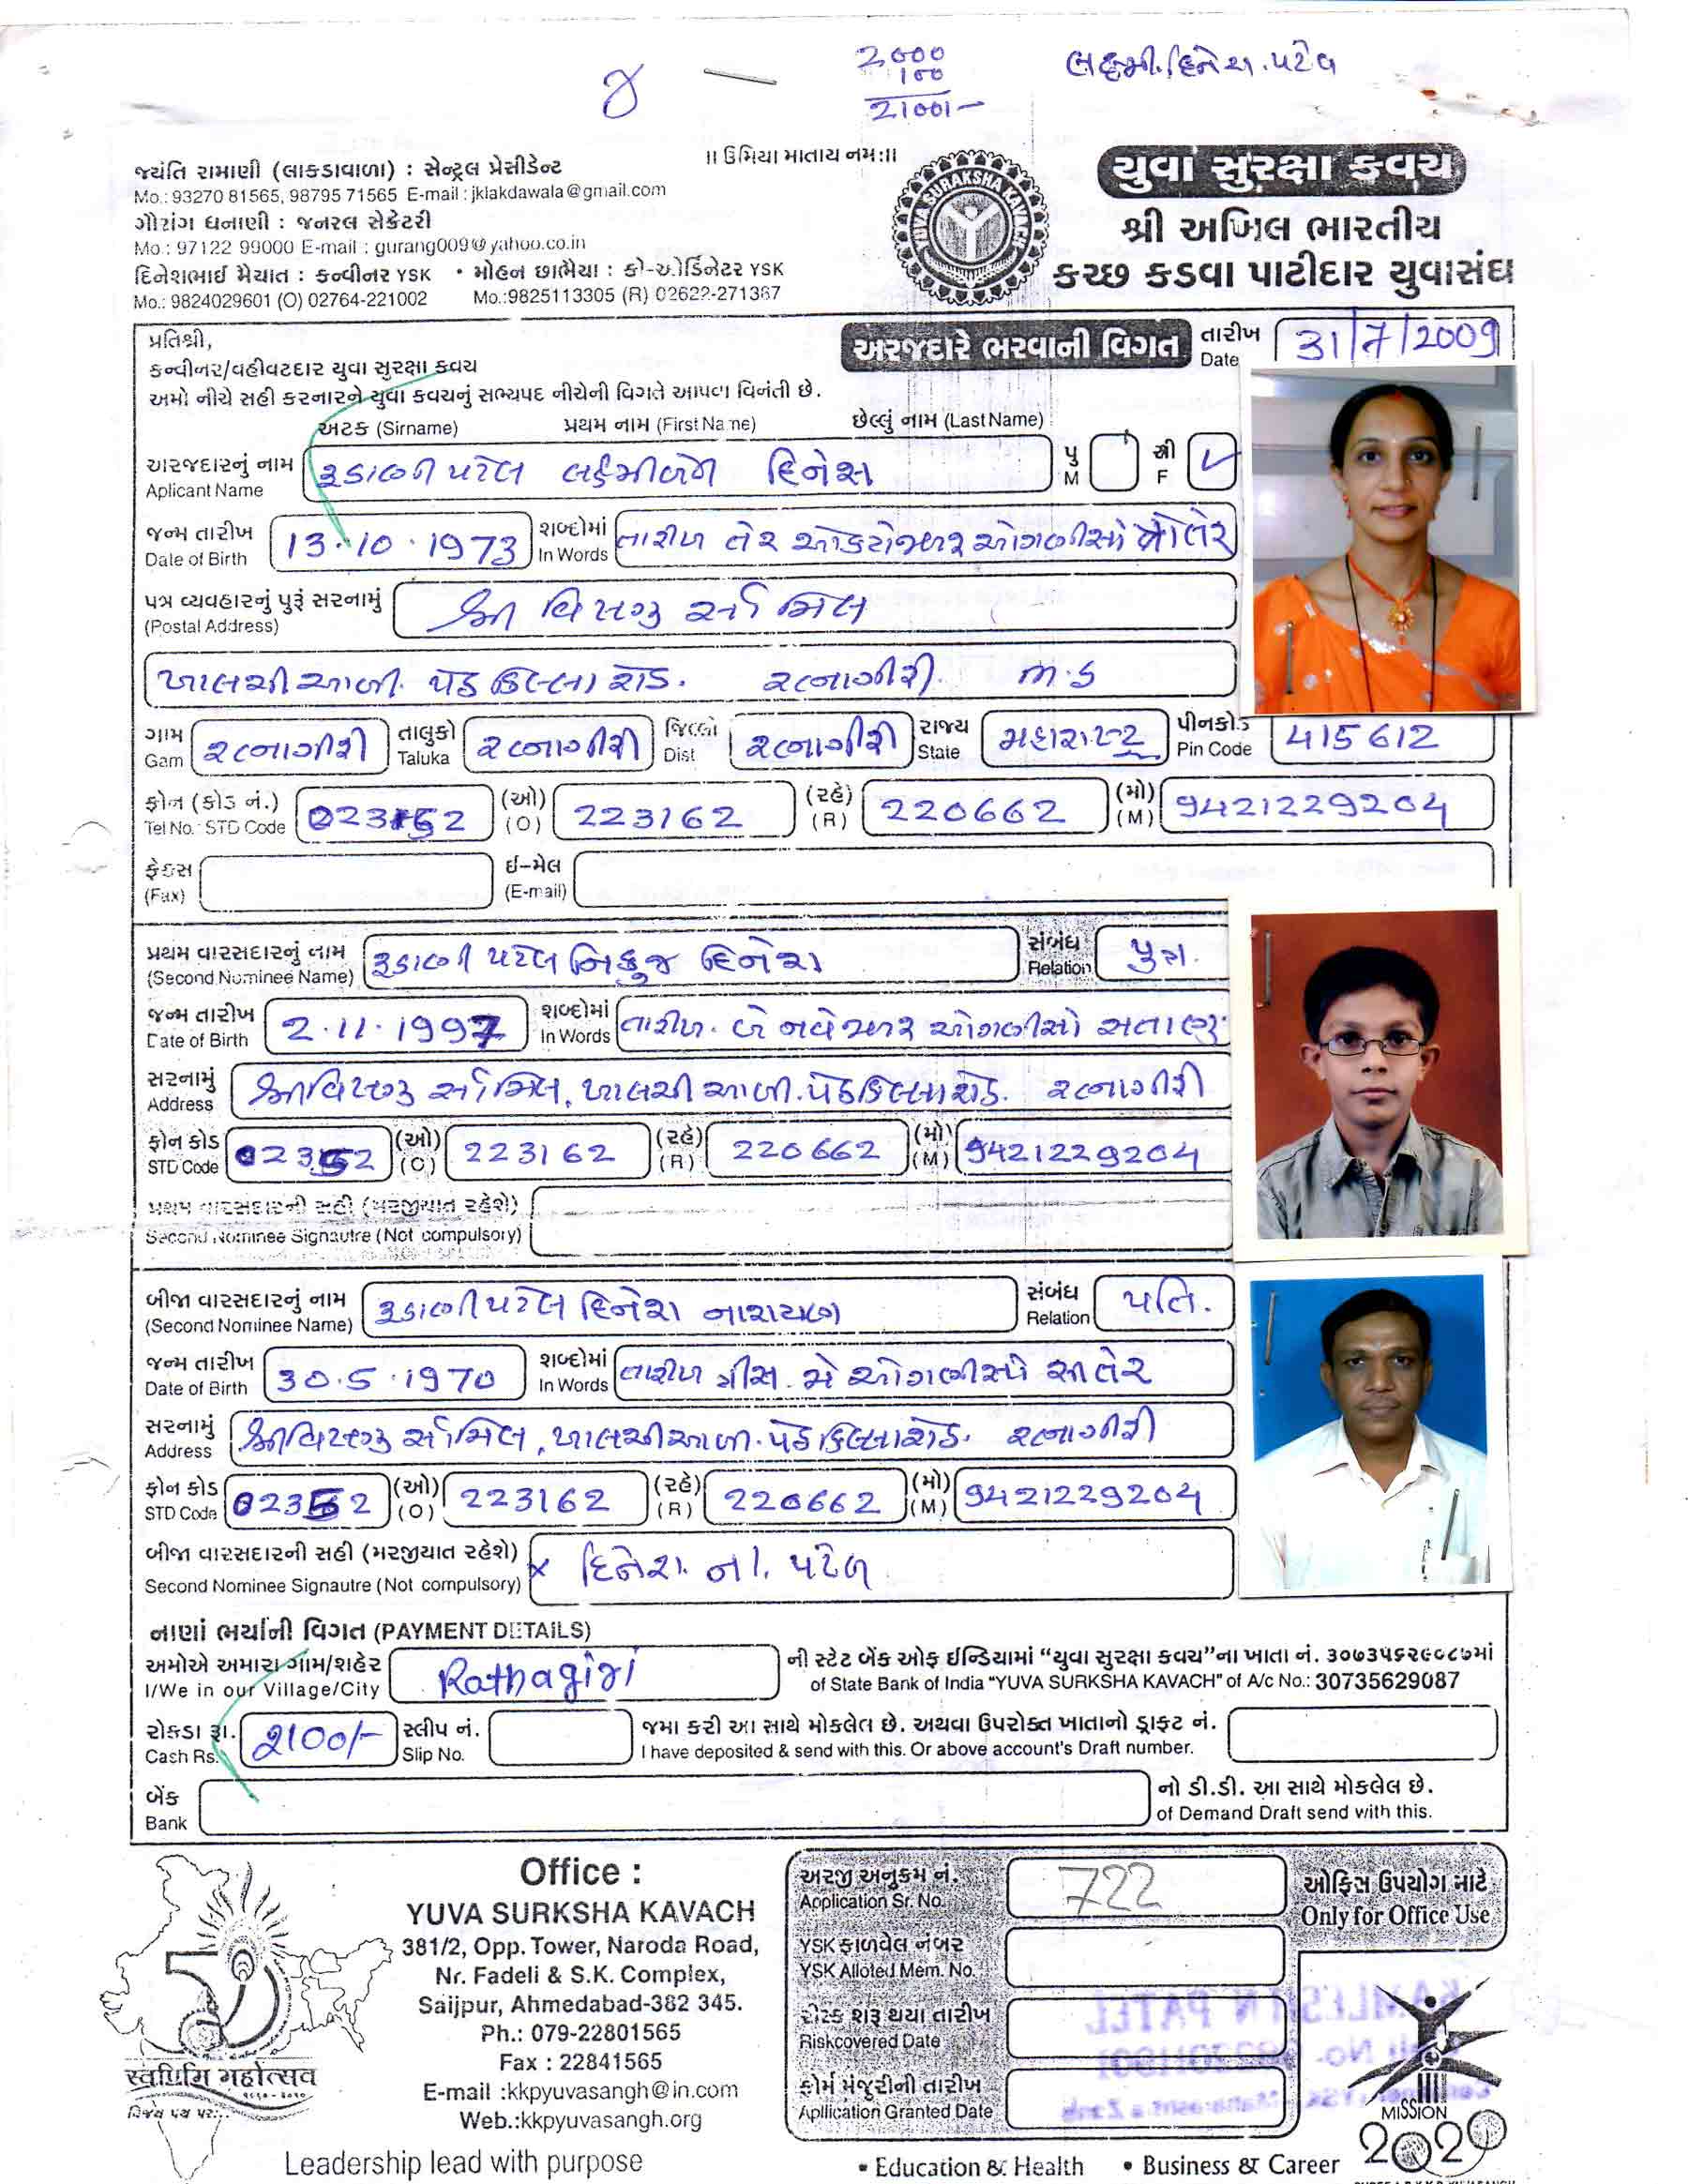 2000
100
2100/-
લક્ષ્મી.દિનેશ.પટેલ
જયંતિ રામાણી (લાકડાવાળા) : સેન્ટ્રલ પ્રેસીડેન્ટ
Mo.: 93270 81565, 98795 71565 E-mail : jklakdawala@gmail.com
ગૌરાંગ ધનાણી : જનરલ સેક્રેટરી
Mo.: 97122 99000 E-mail : gurang009@yahoo.co.in
દિનેશભાઈ મેયાત : કન્વીનર YSK • મોહન છાભૈયા : કો-ઓર્ડિનેટર YSK
Mo.: 9824029601 (O) 02764-221002 Mo.:9825113305 (R) 02622-271367
॥ ઉમિયા માતાય નમઃ॥
YUVA SURAKSHA KAVACH
યુવા સુરક્ષા કવચ
શ્રી અખિલ ભારતીય
કચ્છ કડવા પાટીદાર યુવાસંઘ
પ્રતિશ્રી,
કન્વીનર/વહીવટદાર યુવા સુરક્ષા કવચ
અમો નીચે સહી કરનારને યુવા કવચનું સભ્યપદ નીચેની વિગતે આપવા વિનંતી છે.
અરજદારે ભરવાની વિગત
તારીખ Date 31/7/2009
અટક (Sirname) પ્રથમ નામ (First Name) છેલ્લું નામ (Last Name)
અરજદારનું નામ Aplicant Name રૂડાણી પટેલ લક્ષ્મીબેન દિનેશ પુ M સ્ત્રી F ✓
જન્મ તારીખ Date of Birth 13.10.1973 શબ્દોમાં In Words તારીખ તેર ઓક્ટોમ્બર ઓગણીસો તોતેર
પત્ર વ્યવહારનું પુરૂં સરનામું (Postal Address) શ્રી વિષ્ણુ સો મિલ
ખાલચી આળી. પેઠ કિલ્લા રોડ. રત્નાગીરી.
ગામ Gam રત્નાગીરી તાલુકો Taluka રત્નાગીરી જિલ્લો Dist રત્નાગીરી રાજ્ય State મહારાષ્ટ્ર પીનકોડ Pin Code 415612
ફોન (કોડ નં.) Tel No.: STD Code 02352 (ઓ) (O) 223162 (રહે) (R) 220662 (મો) (M) 9421229204
ફેક્સ (Fax) ઈ-મેલ (E-mail)
પ્રથમ વારસદારનું નામ (Second Nominee Name) રૂડાણી પટેલ નિકુજ દિનેશ સંબંધ Relation પુત્ર.
જન્મ તારીખ Date of Birth 2.11.1997 શબ્દોમાં In Words તારીખ. બે નવેમ્બર ઓગણીસો સતાણુ
સરનામું Address શ્રી વિષ્ણુ સો મિલ, ખાલચી આળી. પેઠ કિલ્લા રોડ. રત્નાગીરી
ફોન કોડ STD Code 02352 (ઓ) (O) 223162 (રહે) (R) 220662 (મો) (M) 9421229204
પ્રથમ વારસદારની સહી (મરજીયાત રહેશે)
Second Nominee Signautre (Not compulsory)
બીજા વારસદારનું નામ (Second Nominee Name) રૂડાણી પટેલ દિનેશ નારાયણ સંબંધ Relation પતિ.
જન્મ તારીખ Date of Birth 30.5.1970 શબ્દોમાં In Words તારીખ ત્રીસ. મે ઓગણીસો સીતેર
સરનામું Address શ્રી વિષ્ણુ સો મિલ, ખાલચી આળી. પેઠ કિલ્લા રોડ. રત્નાગીરી
ફોન કોડ STD Code 02352 (ઓ) (O) 223162 (રહે) (R) 220662 (મો) (M) 9421229204
બીજા વારસદારની સહી (મરજીયાત રહેશે)
Second Nominee Signautre (Not compulsory) x દિનેશ. ના. પટેલ
નાણાં ભર્યાની વિગત (PAYMENT DETAILS)
અમોએ અમારા ગામ/શહેર I/We in our Village/City Rathagiri ની સ્ટેટ બેંક ઓફ ઈન્ડિયામાં “યુવા સુરક્ષા કવચ”ના ખાતા નં. ૩૦૭૩૫૬૨૯૦૮૭માં
of State Bank of India “YUVA SURKSHA KAVACH” of A/c No.: 30735629087
રોકડા રૂા. Cash Rs. 2100/- સ્લીપ નં. Slip No. જમા કરી આ સાથે મોકલેલ છે. અથવા ઉપરોક્ત ખાતાનો ડ્રાફ્ટ નં.
I have deposited & send with this. Or above account's Draft number.
બેંક Bank નો ડી.ડી. આ સાથે મોકલેલ છે.
of Demand Draft send with this.
Office :
YUVA SURKSHA KAVACH
381/2, Opp. Tower, Naroda Road,
Nr. Fadeli & S.K. Complex,
Saijpur, Ahmedabad-382 345.
Ph.: 079-22801565
Fax : 22841565
E-mail :kkpyuvasangh@in.com
Web.:kkpyuvasangh.org
અરજી અનુક્રમ નં. Application Sr. No. 722
YSK ફાળવેલ નંબર YSK Alloted Mem. No.
રીસ્ક શરૂ થયા તારીખ Riskcovered Date
ફોર્મ મંજુરીની તારીખ Apllication Granted Date
ઓફિસ ઉપયોગ માટે
Only for Office Use
50
સ્વર્ણિમ મહોત્સવ
૧૯૬૦ - ૨૦૧૦
વિજય પથ પર...
MISSION
2020
Leadership lead with purpose
• Education & Health • Business & Career